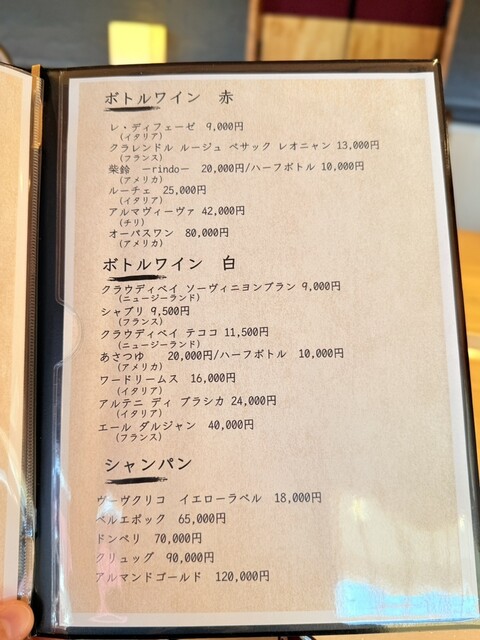 ボトルワイン 赤
レ・ディフェーゼ 9,000円
(イタリア)
クラレンドル ルージュ ペサック レオニャン 13,000円
(フランス)
紫鈴 ーrindoー 20,000円/ハーフボトル 10,000円
(アメリカ)
ルーチェ 25,000円
(イタリア)
アルマヴィーヴァ 42,000円
(チリ)
オーパスワン 80,000円
(アメリカ)
ボトルワイン 白
クラウディベイ ソーヴィニヨンブラン 9,000円
(ニュージーランド)
シャブリ 9,500円
(フランス)
クラウディベイ テココ 11,500円
(ニュージーランド)
あさつゆ 20,000円/ハーフボトル 10,000円
(アメリカ)
ワードリームス 16,000円
(イタリア)
アルテニ ディ ブラシカ 24,000円
(イタリア)
エール ダルジャン 40,000円
(フランス)
シャンパン
ヴーヴクリコ イエローラベル 18,000円
ベルエポック 65,000円
ドンペリ 70,000円
クリュッグ 90,000円
アルマンドゴールド 120,000円